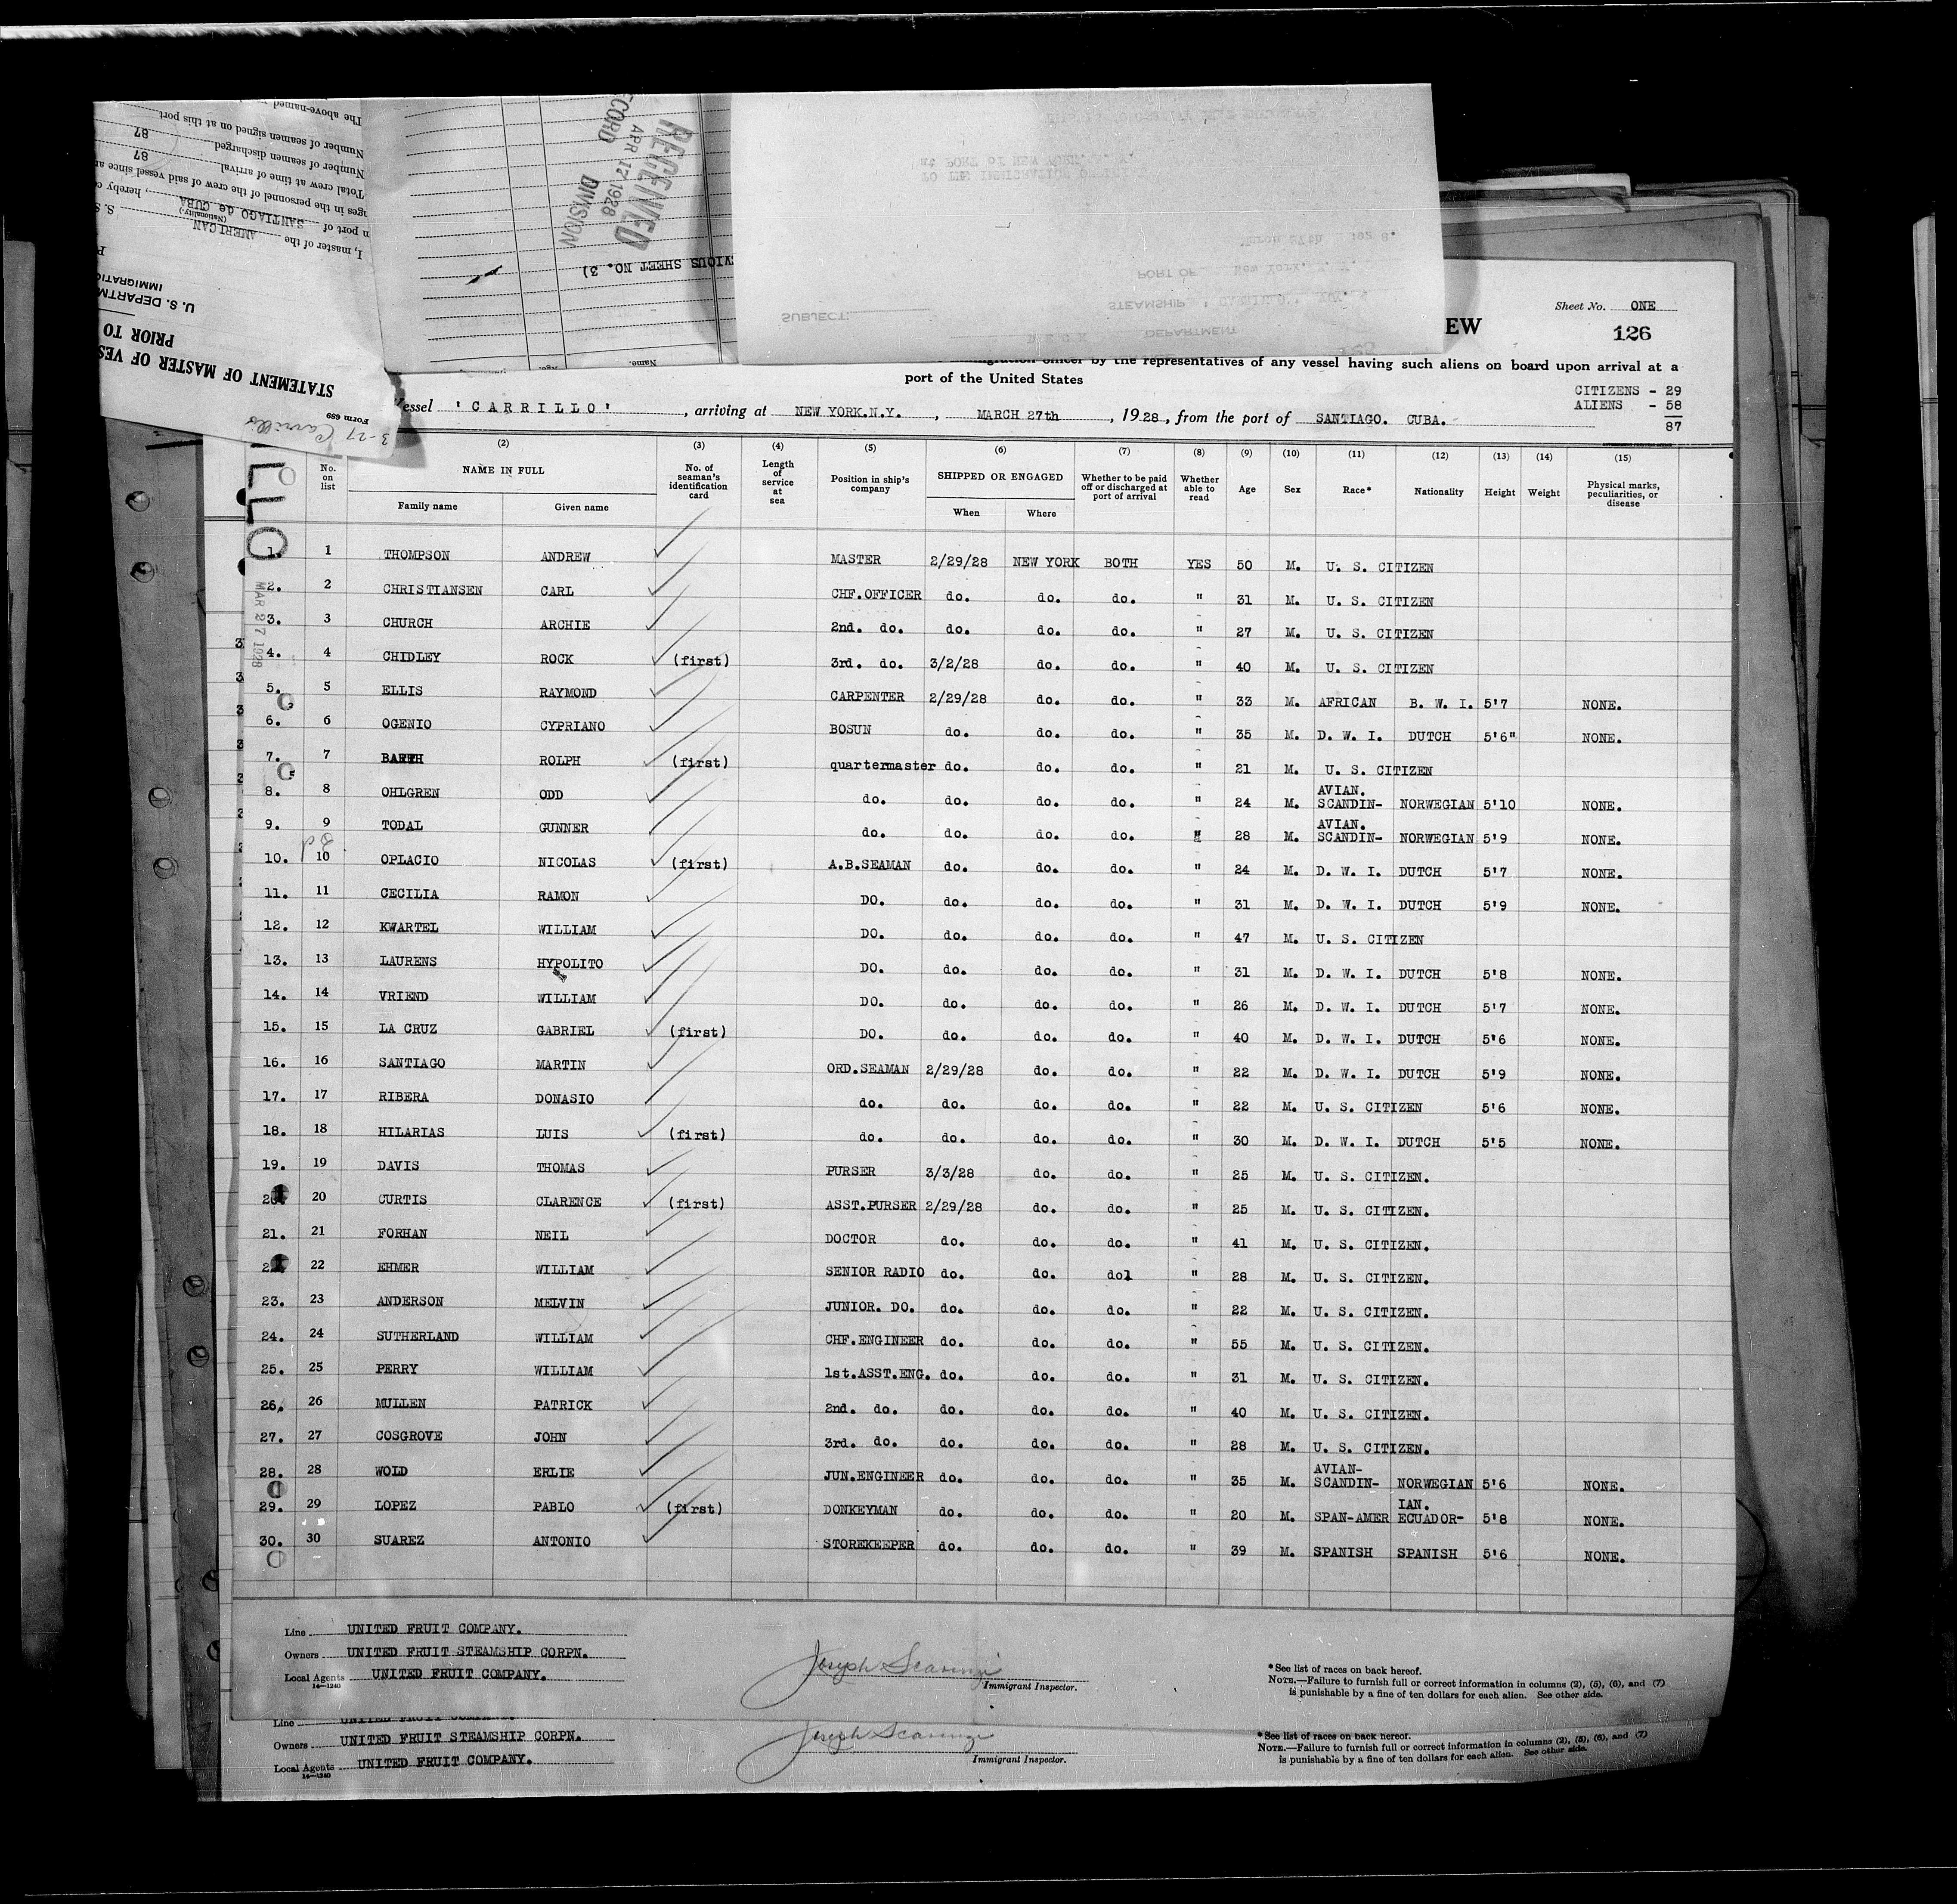 The above-named
Number of seamen signed on at this port
87
Number of seamen discharged
87
Total crew at time of arrival
ges in the personnel of the crew of said vessel since
SANTIAGO de CUBA, hereby
n port of
(Nationality)
AMERICAN
I, master of the
IMMIGRATIO
U. S. DEPARTM
PRIOR TO
STATEMENT OF MASTER OF VES
Form 689
3-27 Carrillo
RECEIVED
APR 17 1928
ECORD DIVISION
VIOUS SHEET NO. 3)
Name.
SUBJECT:
DEPARTMENT
STEAMSHIP
PORT OF New York, N. Y.
March 27th 192 8.
TO THE IMMIGRATION
AT PORT OF NEW YORK, N. Y.
EW
Sheet No. ONE
126
officer by the representatives of any vessel having such aliens on board upon arrival at a
port of the United States
CITIZENS - 29
ALIENS - 58
87
essel 'CARRILLO', arriving at NEW YORK.N.Y., MARCH 27th, 1928, from the port of SANTIAGO. CUBA.
LLO
MAR 27 1928
No. on list (2) NAME IN FULL Family name Given name (3) No. of seaman's identification card (4) Length of service at sea (5) Position in ship's company (6) SHIPPED OR ENGAGED When Where (7) Whether to be paid off or discharged at port of arrival (8) Whether able to read (9) Age (10) Sex (11) Race* (12) Nationality (13) Height (14) Weight (15) Physical marks, peculiarities, or disease
1. 1 THOMPSON ANDREW MASTER 2/29/28 NEW YORK BOTH YES 50 M. U. S. CITIZEN
2. 2 CHRISTIANSEN CARL CHF.OFFICER do. do. do. " 31 M. U. S. CITIZEN
3. 3 CHURCH ARCHIE 2nd. do. do. do. do. " 27 M. U. S. CITIZEN
4. 4 CHIDLEY ROCK (first) 3rd. do. 3/2/28 do. do. " 40 M. U. S. CITIZEN
5. 5 ELLIS RAYMOND CARPENTER 2/29/28 do. do. " 33 M. AFRICAN B. W. I. 5'7 NONE.
6. 6 OGENIO CYPRIANO BOSUN do. do. do. " 35 M. D. W. I. DUTCH 5'6" NONE.
7. 7 BARTH ROLPH (first) quartermaster do. do. do. " 21 M. U. S. CITIZEN
8. 8 OHLGREN ODD do. do. do. do. " 24 M. AVIAN. SCANDIN- NORWEGIAN 5'10 NONE.
9. 9 TODAL GUNNER do. do. do. do. " 28 M. AVIAN. SCANDIN- NORWEGIAN 5'9 NONE.
10. 10 OPLACIO NICOLAS (first) A.B.SEAMAN do. do. do. " 24 M. D. W. I. DUTCH 5'7 NONE.
11. 11 CECILIA RAMON DO. do. do. do. " 31 M. D. W. I. DUTCH 5'9 NONE.
12. 12 KWARTEL WILLIAM DO. do. do. do. " 47 M. U. S. CITIZEN
13. 13 LAURENS HYPOLITO DO. do. do. do. " 31 M. D. W. I. DUTCH 5'8 NONE.
14. 14 VRIEND WILLIAM DO. do. do. do. " 26 M. D. W. I. DUTCH 5'7 NONE.
15. 15 LA CRUZ GABRIEL (first) DO. do. do. do. " 40 M. D. W. I. DUTCH 5'6 NONE.
16. 16 SANTIAGO MARTIN ORD.SEAMAN 2/29/28 do. do. " 22 M. D. W. I. DUTCH 5'9 NONE.
17. 17 RIBERA DONASIO do. do. do. do. " 22 M. U. S. CITIZEN 5'6 NONE.
18. 18 HILARIAS LUIS (first) do. do. do. do. " 30 M. D. W. I. DUTCH 5'5 NONE.
19. 19 DAVIS THOMAS PURSER 3/3/28 do. do. " 25 M. U. S. CITIZEN.
20. 20 CURTIS CLARENCE (first) ASST.PURSER 2/29/28 do. do. " 25 M. U. S. CITIZEN.
21. 21 FORHAN NEIL DOCTOR do. do. do. " 41 M. U. S. CITIZEN.
22. 22 EHMER WILLIAM SENIOR RADIO do. do. dol " 28 M. U. S. CITIZEN.
23. 23 ANDERSON MELVIN JUNIOR. DO. do. do. do. " 22 M. U. S. CITIZEN.
24. 24 SUTHERLAND WILLIAM CHF.ENGINEER do. do. do. " 55 M. U. S. CITIZEN.
25. 25 PERRY WILLIAM 1st.ASST.ENG. do. do. do. " 31 M. U. S. CITIZEN.
26. 26 MULLEN PATRICK 2nd. do. do. do. do. " 40 M. U. S. CITIZEN.
27. 27 COSGROVE JOHN 3rd. do. do. do. do. " 28 M. U. S. CITIZEN.
28. 28 WOLD ERLIE JUN.ENGINEER do. do. do. " 35 M. AVIAN- SCANDIN- NORWEGIAN 5'6 NONE.
29. 29 LOPEZ PABLO (first) DONKEYMAN do. do. do. " 20 M. SPAN-AMER IAN. ECUADOR- 5'8 NONE.
30. 30 SUAREZ ANTONIO STOREKEEPER do. do. do. " 39 M. SPANISH SPANISH 5'6 NONE.
Line UNITED FRUIT COMPANY.
Owners UNITED FRUIT STEAMSHIP CORPN.
Local Agents UNITED FRUIT COMPANY.
14-1240
Joseph Scaringi
Immigrant Inspector.
*See list of races on back hereof.
NOTE.—Failure to furnish full or correct information in columns (2), (5), (6), and (7)
is punishable by a fine of ten dollars for each alien. See other side.
Line UNITED FRUIT COMPANY.
Owners UNITED FRUIT STEAMSHIP CORPN.
Local Agents UNITED FRUIT COMPANY.
14-1240
Joseph Scaringi
Immigrant Inspector.
*See list of races on back hereof.
NOTE.—Failure to furnish full or correct information in columns (2), (5), (6), and (7)
is punishable by a fine of ten dollars for each alien. See other side.